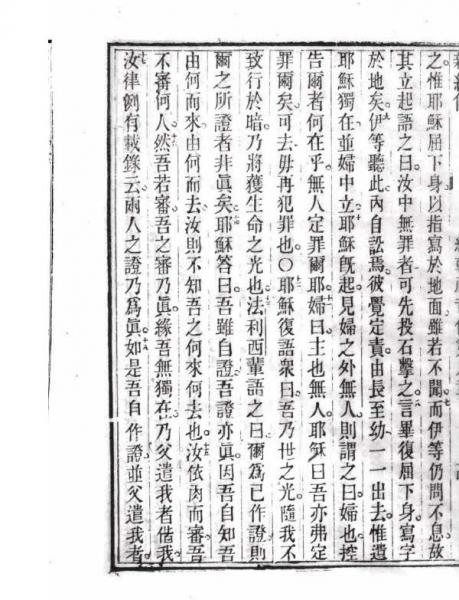 之惟耶穌屈下身以指寫於地面雖若不聞而伊等仍問不息故
其立起語之曰汝中無罪者可先投石擊之言畢復屈下身寫字
於地矣伊等聽此內自訟焉彼覺定責由長至幼一一出去惟遺
耶穌獨在並婦中立耶穌旣起見婦之外無人則謂之曰婦也控
告爾者何在乎無人定罪爾耶婦曰主也無人耶穌曰吾亦弗定
罪爾矣可去毋再犯罪也〇耶穌復語衆曰吾乃世之光隨我不
致行於暗乃將獲生命之光也法利西輩語之曰爾爲已作證則
爾之所證者非眞矣耶穌答曰吾雖自證吾證亦眞因吾自知吾
由何而來由何而去汝則不知吾之何來何去也汝依肉而審吾
不審何人然吾若審吾之審乃眞緣吾無獨在乃父遣我者偕我
汝律例有載錄云兩人之證乃爲眞如是吾自作證並父遣我者